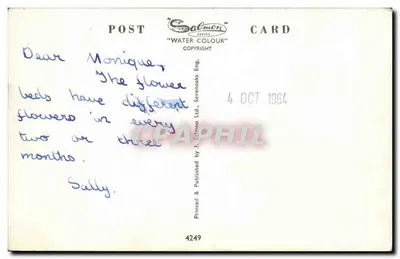 POST Salmon SERIES CARD
"WATER COLOUR"
COPYRIGHT
Dear Monique,
The flower
beds have different
flowers in every
two or three
months.
Sally.
4 OCT 1964
Printed & Published by J. Salmon Ltd., Sevenoaks Eng.
CPARHIL.COM
4249